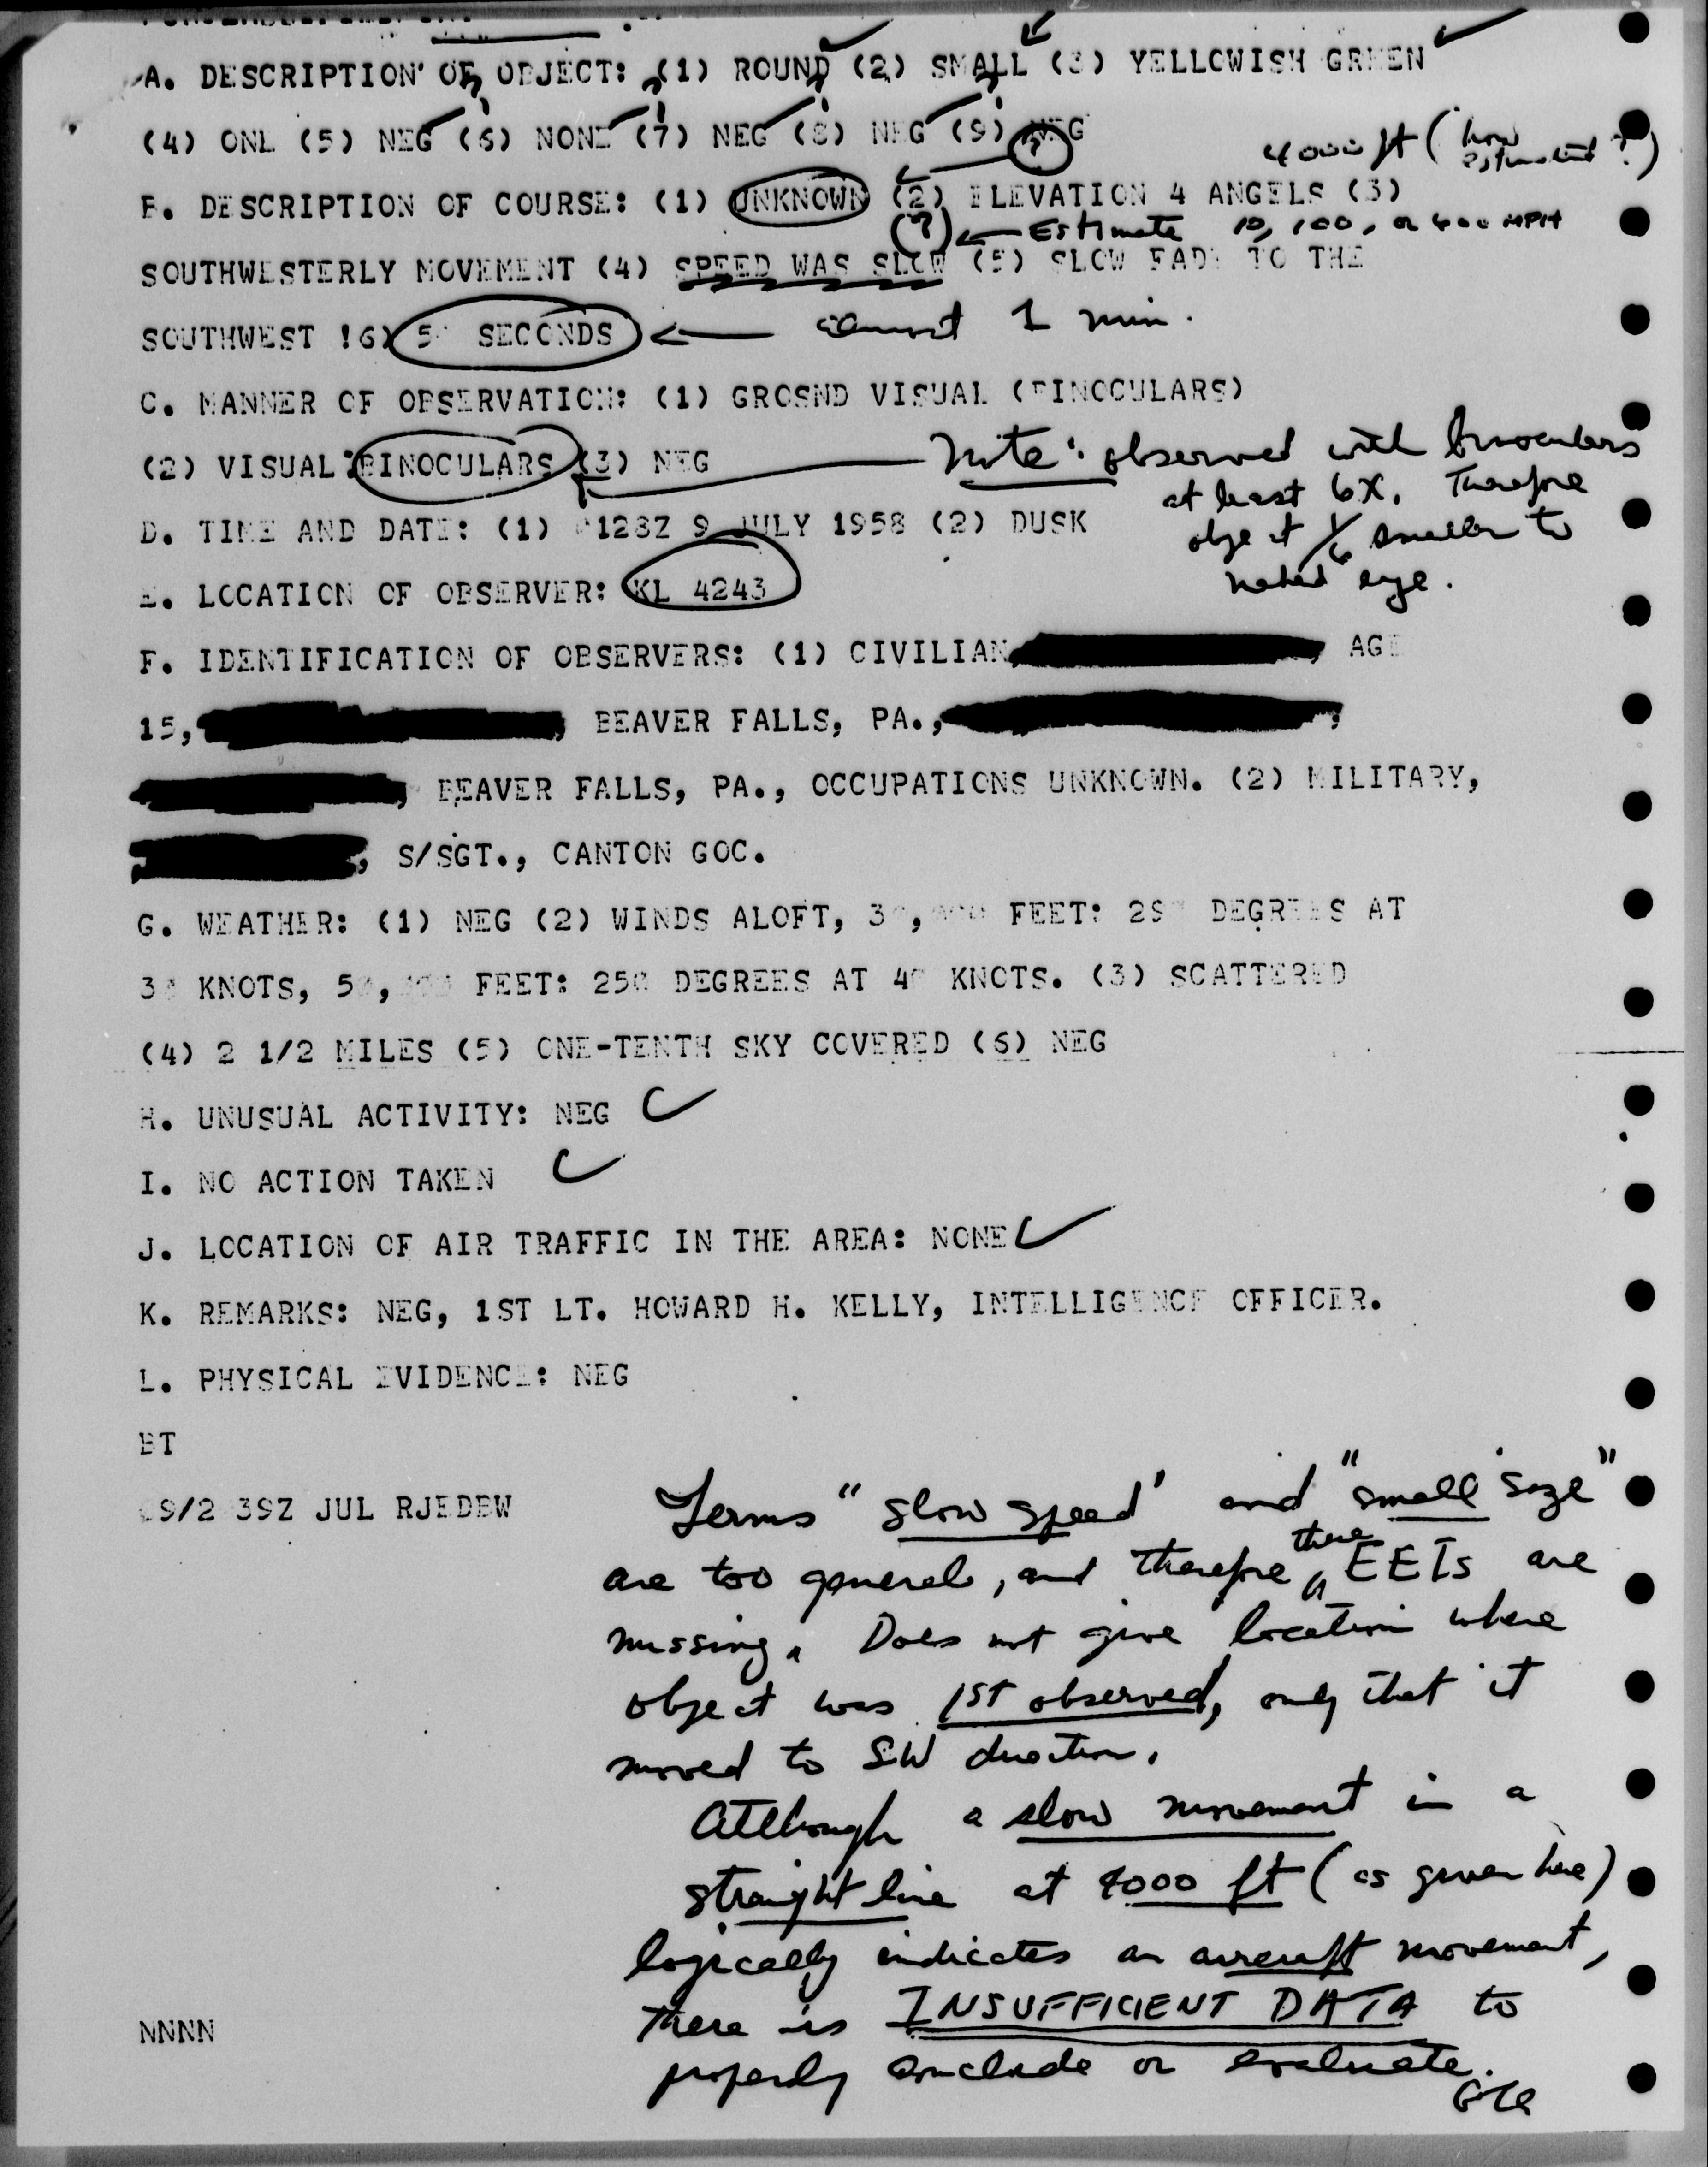 A. DESCRIPTION OF OBJECT: (1) ROUND (2) SMALL (3) YELLOWISH GREEN
(4) ONL (5) NEG (6) NONE (7) NEG (8) NEG (9) NEG
4000 ft (how estimated?)
B. DESCRIPTION OF COURSE: (1) UNKNOWN (2) ELEVATION 4 ANGELS (3)
(?) ← Estimate 10, 100, or 400 MPH
SOUTHWESTERLY MOVEMENT (4) SPEED WAS SLOW (5) SLOW FADE TO THE
SOUTHWEST !6) 5 SECONDS ← almost 1 min.
C. MANNER OF OBSERVATION: (1) GROSND VISUAL (BINOCULARS)
(2) VISUAL:BINOCULARS (3) NEG
Note: observed with binoculars
at least 6X. Therefore
object 1/6 smaller to
naked eye.
D. TIME AND DATE: (1) 0128Z 9 JULY 1958 (2) DUSK
E. LOCATION OF OBSERVER: KL 4243
F. IDENTIFICATION OF OBSERVERS: (1) CIVILIAN, AGE
15, , BEAVER FALLS, PA., ,
, BEAVER FALLS, PA., OCCUPATIONS UNKNOWN. (2) MILITARY,
, S/SGT., CANTON GOC.
G. WEATHER: (1) NEG (2) WINDS ALOFT, 30,000 FEET: 290 DEGREES AT
30 KNOTS, 50,000 FEET: 250 DEGREES AT 40 KNOTS. (3) SCATTERED
(4) 2 1/2 MILES (5) ONE-TENTH SKY COVERED (6) NEG
H. UNUSUAL ACTIVITY: NEG
I. NO ACTION TAKEN
J. LOCATION OF AIR TRAFFIC IN THE AREA: NONE
K. REMARKS: NEG, 1ST LT. HOWARD H. KELLY, INTELLIGENCE OFFICER.
L. PHYSICAL EVIDENCE: NEG
BT
09/2039Z JUL RJEDBW
Terms "slow speed" and "small size"
are too general, and therefore these EEIs are
missing. Does not give location where
object was 1ST observed, only that it
moved to SW direction.
Although a slow movement in a
straight line at 4000 ft (as given here)
logically indicates an aircraft movement,
there is INSUFFICIENT DATA to
properly conclude or evaluate.
NNNN